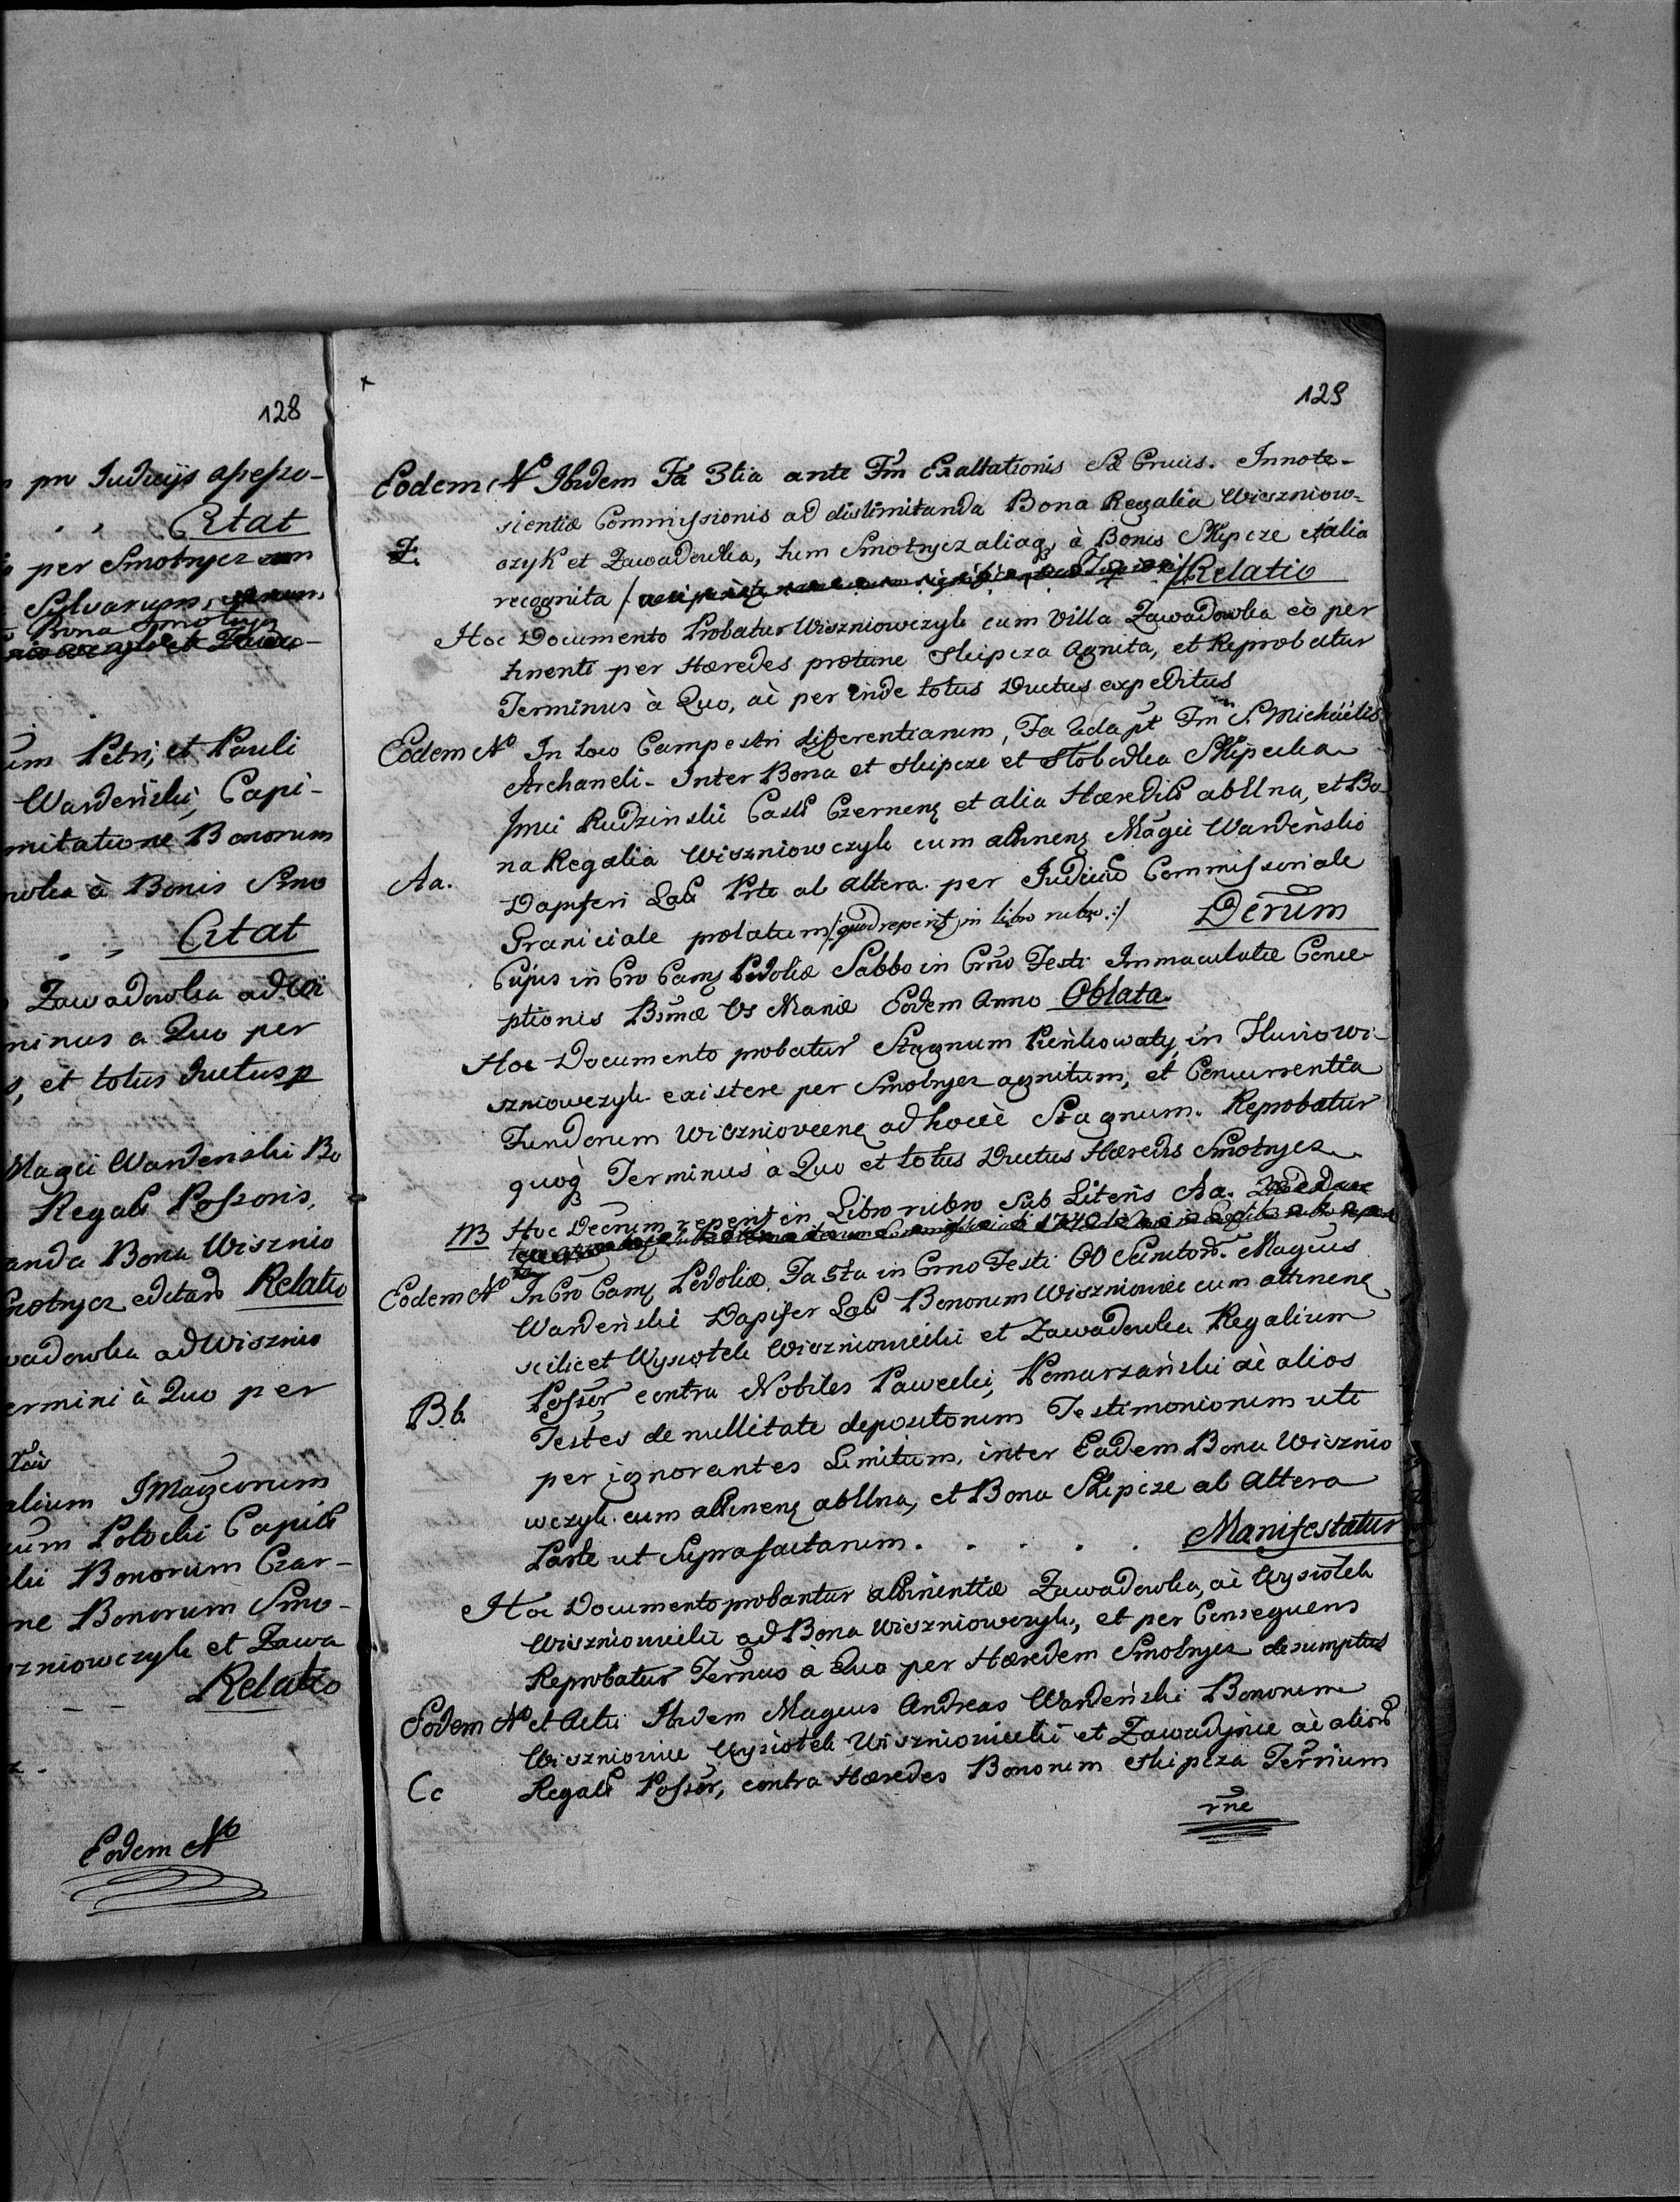 128
pro Judicijs assesso-
Citat
per Smotrycz
Sylvarum,
Bona Smotrycz
um Petri, et Pauli
Wardeński, Capi-
mitatione Bonorum
à Bonis Smo
Citat
Zawadowka ad Wi
minus a Quo per
et totus Ductus p
Magci Wardenski Bo
Regals Possoris,
anda Bona Wisznio
Smotrycz editars Relatio
wadowka ad Wisznio
ermini à Quo per
alium JMagcorum
um Potocki Capit
ski Bonorum Czar-
ne Bonorum Smo-
szniowczyk et Zawa
Relatio
Eodem Ao
129
Eodem Ao Ibidem Fa 3tia ante Fm Exaltationis Sæ Crucis. Innote-
scientiæ Commissionis ad dislimitanda Bona Regalia Wieszniow-
Z. czyk et Zawadowka, tum Smotrycz aliaq à Bonis Skipcze et alia
recognita / Relatio
Hoc Documento Probatur Wiszniowczyk cum Villa Zawadowka eo per
tinenti per Hæredes protunc Skipcza Agnita, et Reprobatur
Terminus à Quo, ac per inde totus Ductus expeditus
Eodem Ao In Loco Campestri differentiarum, Fa 2da pt Fm S. Michäelis
Archaneli- Inter Bona et Skipcze et Slobodka Skipecka
Jmci Rudzinski Casti Czernens et alia Hæredits ab Una, et Bo-
na Regalia Wiszniowczyk cum attinens Magci Wardeński
Aa. Dapiferi Lab Prte ab altera per Judicio Commissoriale
Graniciale prolatum /:quod reperit in libro rubro:/ Derum
Cujus in Cro Cams Podoliæ Sabbo in Crno Festi Immaculatæ Conce-
ptionis Bsmæ Vs Mariæ Eodem Anno Oblata.
Hoc Documento probatur Stagnum Pieńkowaty in Fluvio Wi-
szniowczyk existere per Smotrycz agnitum, et Concurrentia
Fundorum Wiszniovcens ad hocce Stagnum. Reprobatur
quoq Terminus à Quo et totus Ductus Hæredis Smotrycz
NB Hoc Decrum reperit in Libro rubro Sub Literis Aa.
Eodem Ao In Cro Cams Podoliæ Fa 5ta in Crno Festi OO Sanctor. Magcus
Wardeński Dapifer Lab Bonorum Wiszniowie cum attinens
scilicet Wysiołek Wiszniowiecki et Zawadowka Regalium
Bb. Possor contra Nobiles Pawecki, Pomarzański ac alios
Testes de nullitate depositorum Testimoniorum uti
per ignorantes Limitum, inter Eadem Bona Wisznio
wczyk cum attinens ab Una, et Bona Skipcze ab Altera
Parte ut Suprafactarum. . . . . . Manifestatur
Hoc Documento probantur attinentiæ Zawadowka, ac Wysiołek
Wiszniowiecki ad Bona Wiszniowczyk, et per Consequens
Reprobatur Ternus à Quo per Hæredem Smotrycz desumptus
Eodem Ao et Actu Ibidem Magcus Andreas Wardeński Bonorum
Wiszniowie Wysiołek Wiszniowiecki et Zawadynie ac alior
Cc Regals Possor, contra Hæredes Bonorum Skipcza Ternium
rne